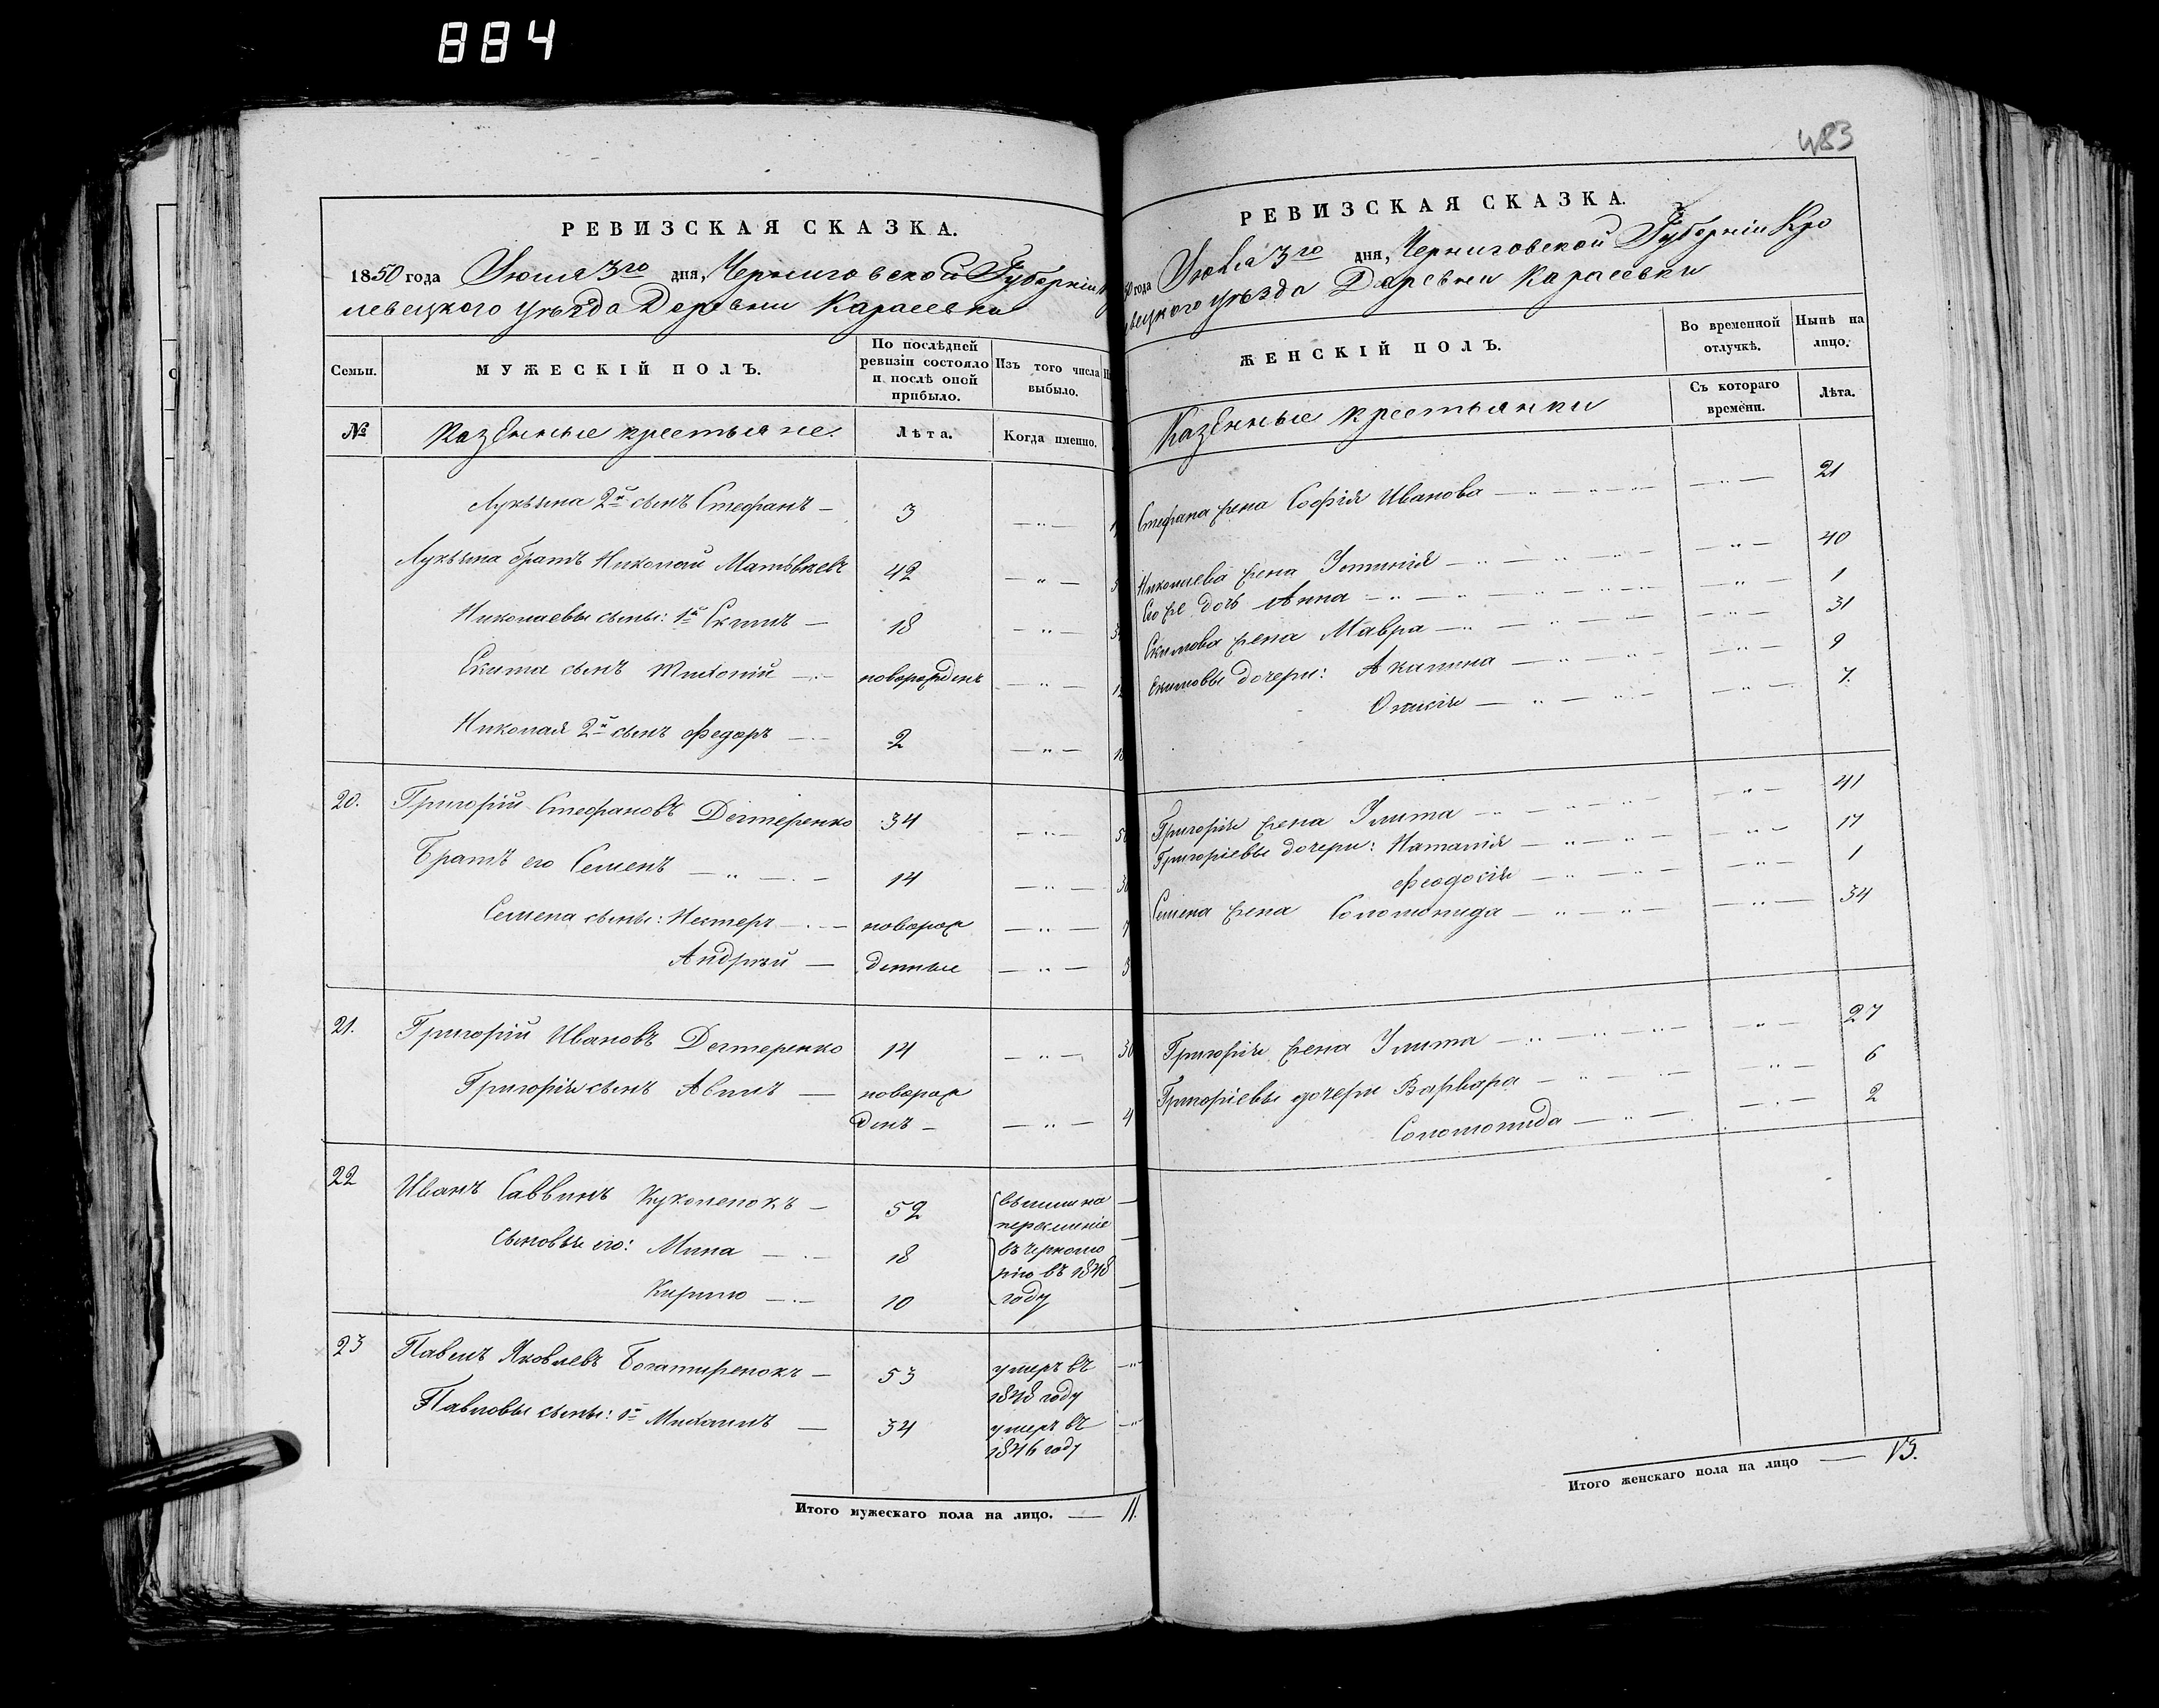 884
РЕВИЗСКАЯ СКАЗКА.
1850 года Іюня 3го дня, Черниговской Губерніи
левецкого уѣзда Деревни Карасевки
Семьи. МУЖЕСКІЙ ПОЛЪ. По послѣдней ревизіи состояло и послѣ оной прибыло. Изъ того числа выбыло.
№ Казенные крестьяне. Лѣта. Когда именно.
Лукьяна 2й сынъ Стефанъ — 3 — " —
Лукьяна братъ Николай Матвѣевъ 42 — " —
Николаевы сыны: 1й Екимъ — 18 — " —
Екима сынъ новорожденъ — " —
Николая 2й сынъ Федоръ — 2 — " —
20. Григорій Стефановъ Дегтеренко 34 — " —
Братъ его Семенъ — " — 14 — " —
Семена сыны: Нестеръ — новорож — " —
Андрѣй — денные — " —
21. Григорій Ивановъ Дегтеренко 14 — " —
Григорія сынъ — новорож
денъ — — " — 4
22 Иванъ Саввинъ Куколенокъ — 52 вышли на —
переселеніе
Сыновья его: Мина — 18 въ Черномо —
рію въ 1848
Кирило — 10 году —
23 Павелъ Яковлевъ Богатиренокъ — 53 умеръ въ — " —
1848 году
Павловы сыны: 1й Михаилъ — 34 умеръ въ — " —
1846 году
Итого мужескаго пола на лицо. — 11.
483
РЕВИЗСКАЯ СКАЗКА.
50 года Іюня 3го дня, Черниговской Губерніи Кро
вецкого уѣзда Деревни Карасевки
ЖЕНСКІЙ ПОЛЪ. Во временной отлучкѣ. Нынѣ на лицо.
Казенные крестьянки Съ котораго времени. Лѣта.
Стефана жена Софія Иванова — " — 21
Николаева жена — " — 40
Его же дочь Анна — " — 1
Екимова жена Мавра — " — 31
Екимовы дочери: Акилина — " — 9
" — 7.
Григорія жена Улита — " — 41
Григоріевы дочери: Наталія — " — 17
Феодосія — " — 1
Семена жена Соломонида — " — 34
Григорія жена Улита — " — 27
Григоріевы дочери Варвара — " — 6
Соломонида — " — 2
Итого женскаго пола на лицо — 13.